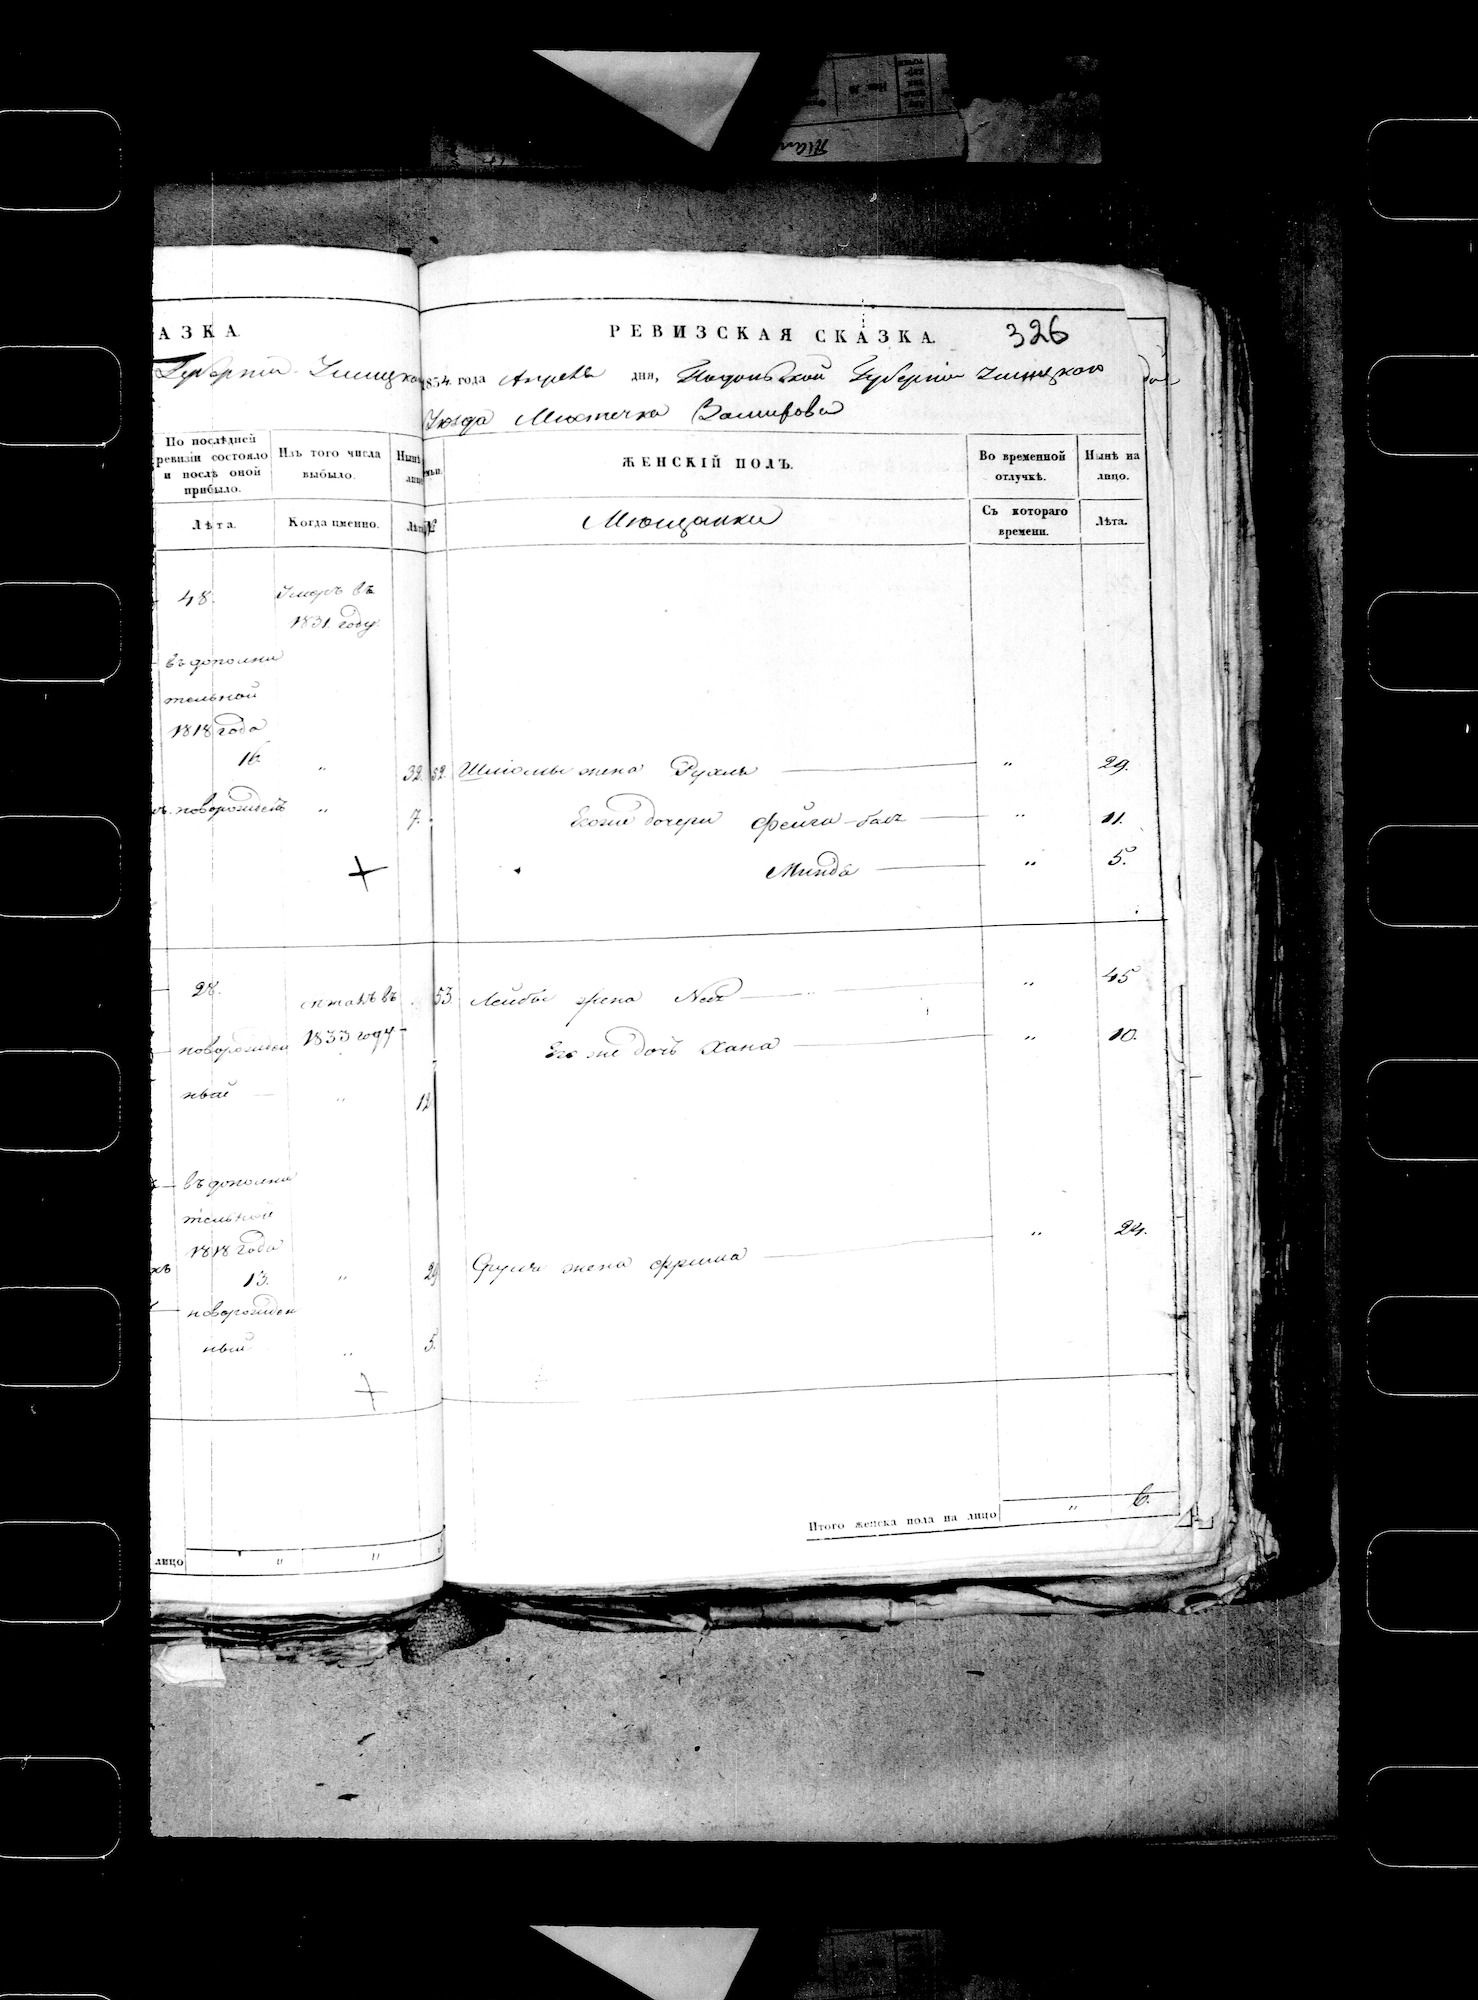 АЗКА.
Губерніи Ушицкаго
По послѣдней
ревизіи состояло
и послѣ оной
прибыло.
Изъ того числа
выбыло.
Нынѣ
Лѣта.
Когда именно.
Лѣта
48.
Умеръ въ
1831. году
въ дополни
тельной
1818 года
16.
"
32.
новорожден
"
7.
28.
1833 году
новорожден
ный
"
12
въ дополни
тельной
1818 года
13.
"
29
новорожден
ный
"
5.
лицо
"
"
РЕВИЗСКАЯ СКАЗКА.
326
1834. года Апреля дня, Подольской Губерніи Ушицкаго
Уѣзда Местечка
ЖЕНСКІЙ ПОЛЪ.
Во временной
отлучкѣ.
Нынѣ на
лицо.
№
Мѣщанки
Съ котораго
времени.
Лѣта.
52. Шліомы жена Рухля " 29.
Его же дочери Фейга " 11.
Минда " 5.
53. Лейбы жена " 45
Его же дочь Хана " 10.
жена Фрима " 24.
Итого женска пола на лицо " 6.